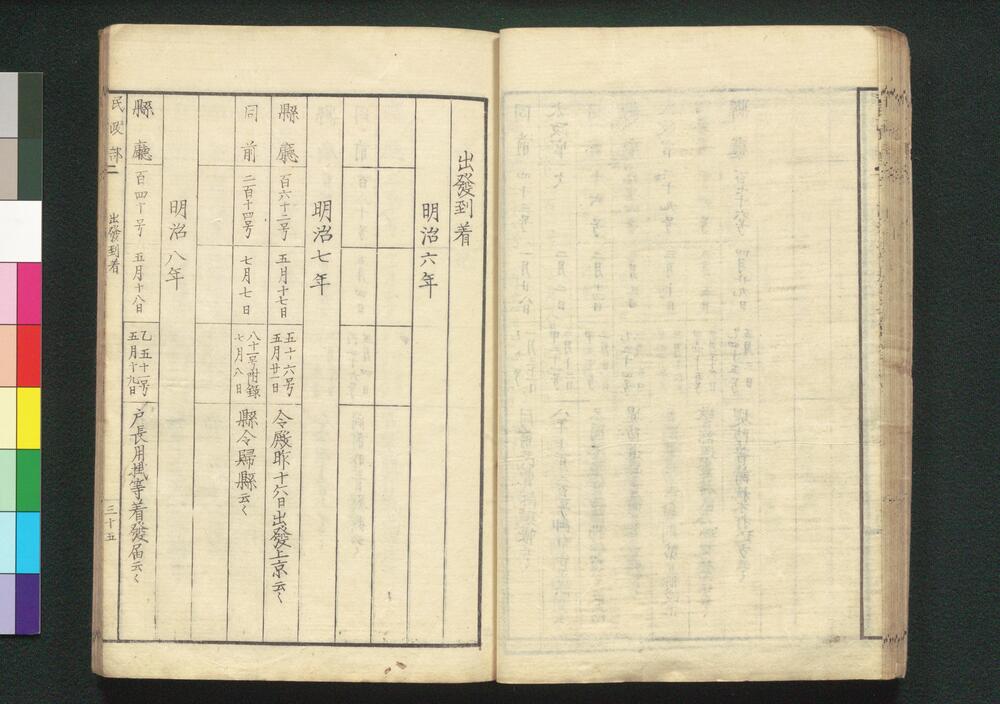 出發到着
明治六年
明治七年
縣廳 百六十二号 五月十七日 五十六号 五月廿一日 令殿昨十六日出發上京云〻
同前 二百十四号 七月七日 八十一号附錄 七月八日 縣令歸縣云〻
明治八年
縣廳 百四十号 五月十八日 乙五十一号 五月十九日 戸長用掛等着發届云〻
民政部二 出發到着 三十五